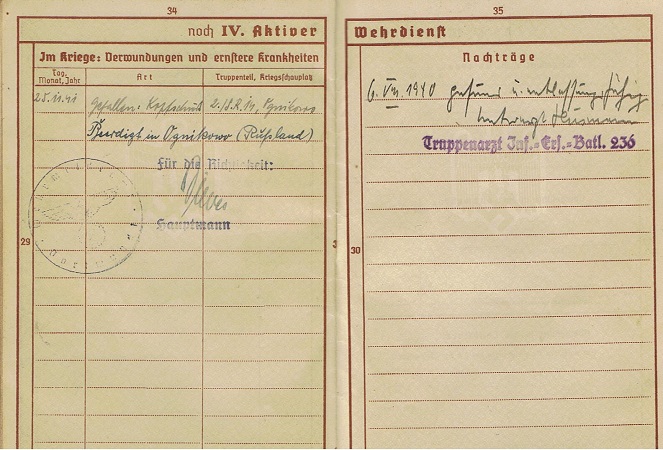 34
noch IV. Aktiver
Im Kriege: Verwundungen und ernstere Krankheiten
Tag, Monat, Jahr
Art
Truppenteil, Kriegsschauplatz
25.11.41 Gefallen: Kopfschuß 2./S.R.11, Ognikowo
Beerdigt in Ognikowo (Rußland)
Für die Richtigkeit:
Hauptmann
29
35
Wehrdienst
Nachträge
6. VII. 1940 gesund u. entlassungsfähig
Truppenarzt Inf.-Ers.-Batl. 236
30